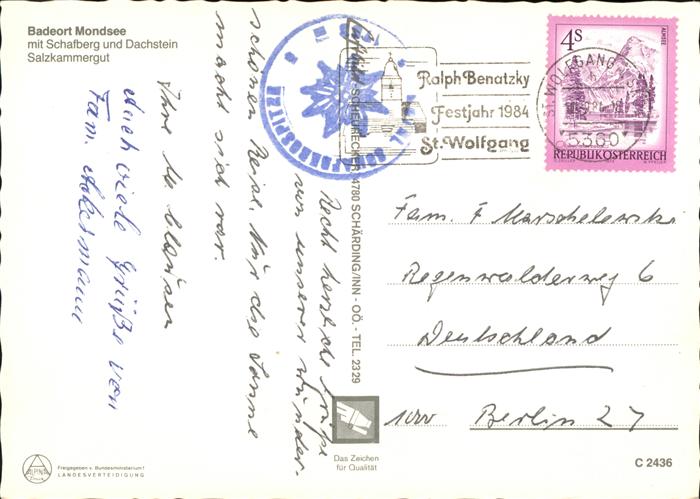 Badeort Mondsee
mit Schafberg und Dachstein
Salzkammergut
Recht herzliche Grüße
von unserer wunder-
schönen Reise. Nur die Sonne
macht sich rar.
Ihre
Auch viele Grüße von
Fam. Ackermann
SCHAFBERGSPITZE
Ralph Benatzky
Festjahr 1984
St. Wolfgang
ST. WOLFGANG
5360
4S
ALMSEE
REPUBLIK ÖSTERREICH
SCHEURECKER 4780 SCHÄRDING/INN - OÖ. - TEL. 2329
Fam. F Marschelewski
Regenwalderweg 6
Deutschland
1000 Berlin 27
Das Zeichen
für Qualität
C 2436
ALPINA
Freigegeben v. Bundesministerium f.
LANDESVERTEIDIGUNG